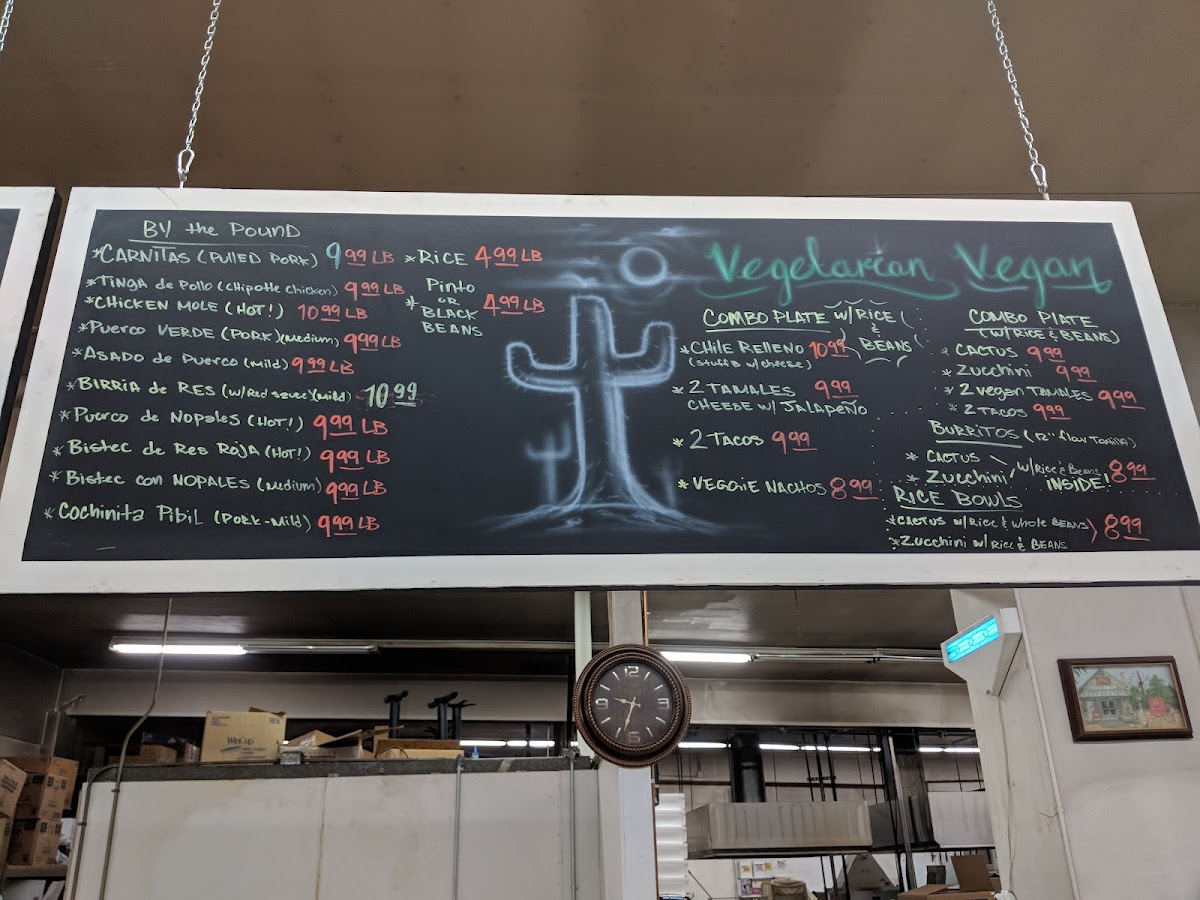 BY the POUND
*CARNITAS (PULLED PORK) 9.99 LB
*TINGA de Pollo (Chipotle chicken) 9.99 LB
*CHICKEN MOLE (HOT!) 10.99 LB
*Puerco VERDE (PORK)(Medium) 9.99 LB
*ASADO de Puerco (mild) 9.99 LB
*BIRRIA de RES (w/Red sauce)(mild) 10.99
*Puerco de Nopales (HOT!) 9.99 LB
*Bistec de Res ROJA (HOT!) 9.99 LB
*Bistec con NOPALES (Medium) 9.99 LB
*Cochinita Pibil (Pork-Mild) 9.99 LB
*RICE 4.99 LB
*Pinto
OR
BLACK
BEANS 4.99 LB
Vegetarian
COMBO PLATE w/RICE
&
BEANS
*CHILE RELLENO 10.99
(stuff'd w/cheese)
*2 TAMALES 9.99
CHEESE w/ JALAPEÑO
*2 TACOS 9.99
*VEGGIE NACHOS 8.99
Vegan
COMBO PLATE
(w/RICE & BEANS)
*CACTUS 9.99
*Zucchini 9.99
*2 vegan TAMALES 9.99
*2 TACOS 9.99
BURRITOS (12" flour Tortilla)
*CACTUS
*Zucchini w/Rice & Beans INSIDE! 8.99
RICE BOWLS
*CACTUS w/Rice & Whole BEANS
*Zucchini w/Rice & BEANS 8.99
WinCup
12
3
6
9